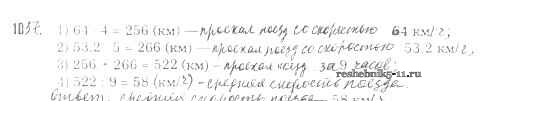 1037. 1) 64 · 4 = 256 (км) — проехал поезд со скоростью 64 км/г;
2) 53,2 · 5 = 266 (км) — проехал поезд со скоростью 53,2 км/г,
3) 256 + 266 = 522 (км) - проехал поезд за 9 часов;
reshebnik5-11.ru
4) 522 : 9 = 58 (км/г) - средняя скорость поезда
Ответ: средняя скорость поезда 58 км/